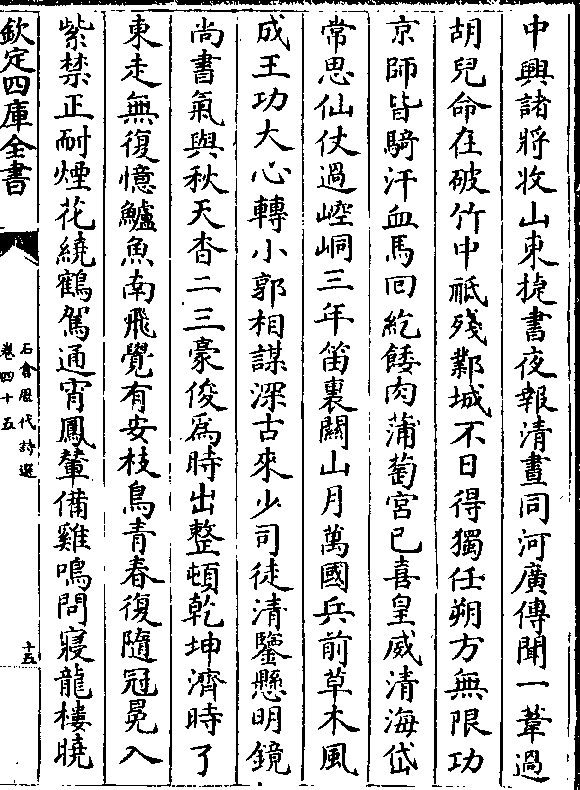 中興諸將收山東捷書夜報清晝同河廣傳聞一葦過
胡兒命在破竹中秪殘鄴城不日得獨任朔方無限功
京師皆騎汗血馬回紇餧肉蒲萄宮已喜皇威清海岱
常思仙仗過崆峒三年笛裏關山月萬國兵前草木風
成王功大心轉小郭相謀深古來少司徒清鑒懸明鏡
尚書氣與秋天杳二三豪俊為時出整頓乾坤濟時了
東走無復憶鱸魚南飛覺有安枝鳥青春復隨冠冕入
紫禁正耐煙花繞鶴駕通宵鳳輦備雞鳴問寢龍樓曉
欽定四庫全書
石倉歷代詩選
卷四十五
十五